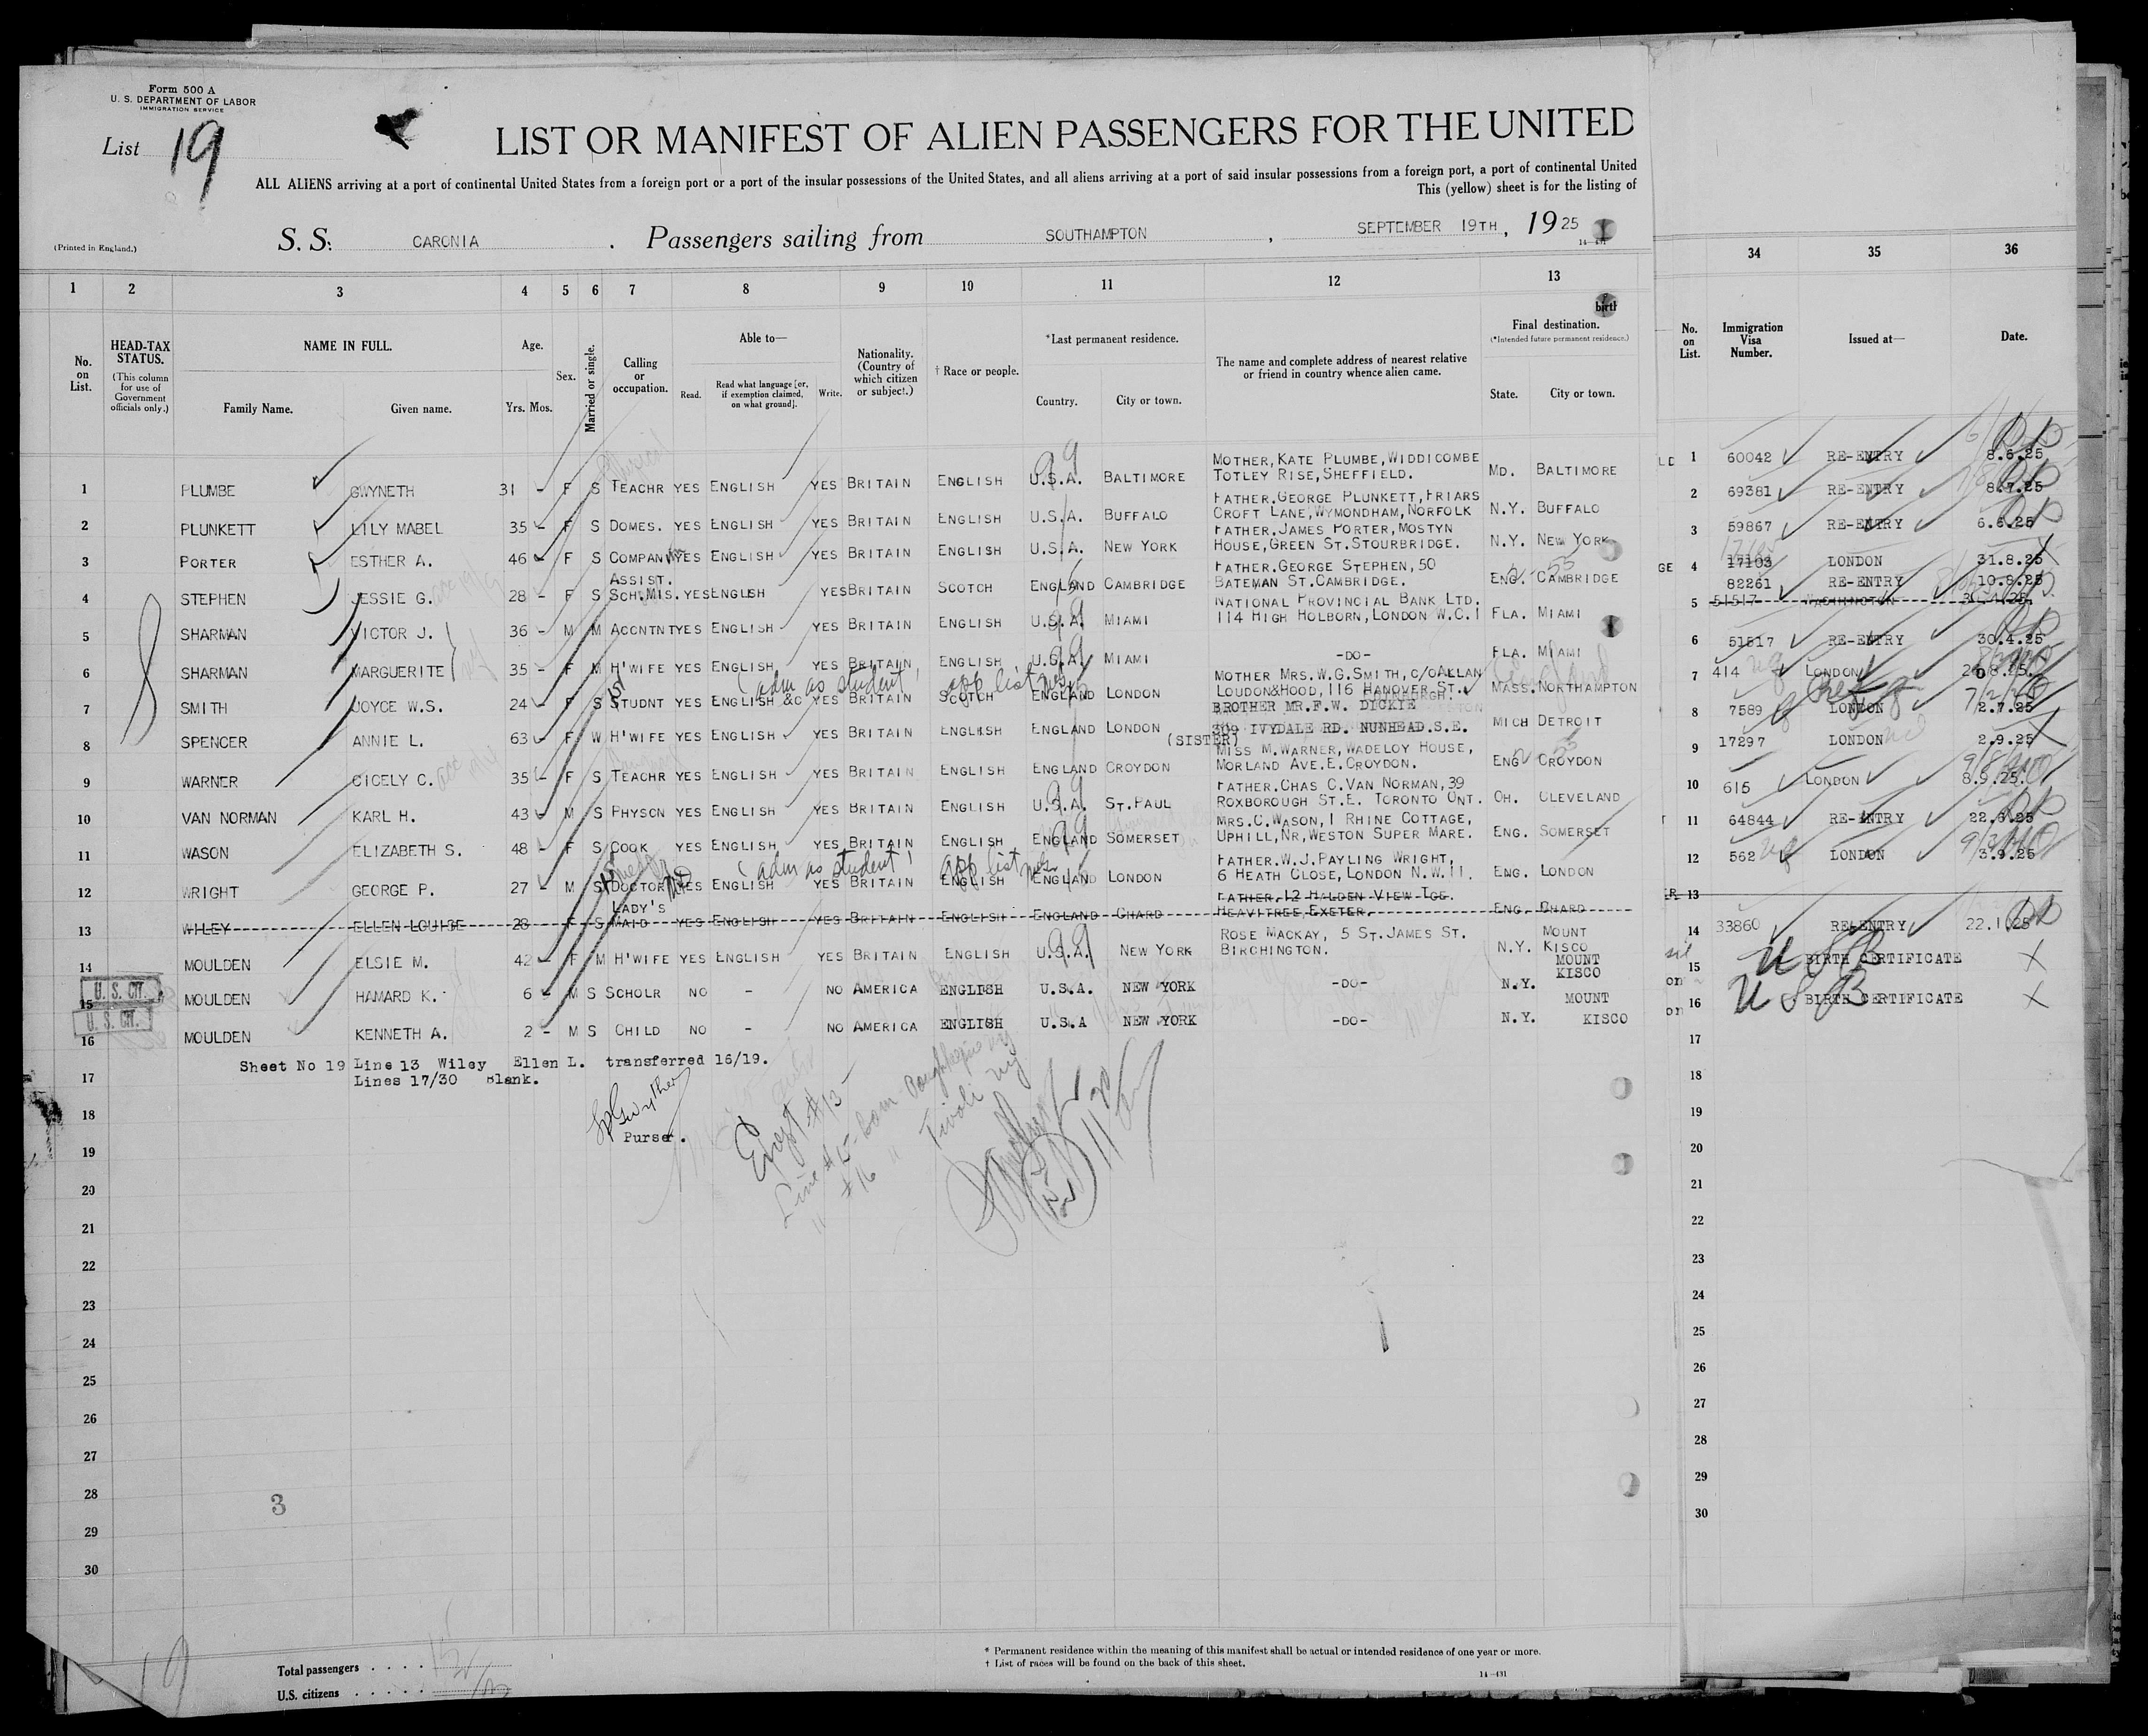 Form 500 A
U. S. DEPARTMENT OF LABOR
IMMIGRATION SERVICE
List 19
LIST OR MANIFEST OF ALIEN PASSENGERS FOR THE UNITED
ALL ALIENS arriving at a port of continental United States from a foreign port or a port of the insular possessions of the United States, and all aliens arriving at a port of said insular possessions from a foreign port, a port of continental United
This (yellow) sheet is for the listing of
(Printed in England.) S. S. CARONIA . Passengers sailing from SOUTHAMPTON , SEPTEMBER 19TH, 1925
14—431
1 2 3 4 5 6 7 8 9 10 11 12 13 34 35 36
birth
No. on List.
HEAD-TAX STATUS.
(This column for use of Government officials only.)
NAME IN FULL.
Family Name. Given name.
Age.
Yrs. Mos.
Sex.
Married or single.
Calling or occupation.
Able to—
Read. Read what language [or, if exemption claimed, on what ground]. Write.
Nationality. (Country of which citizen or subject.)
† Race or people.
*Last permanent residence.
Country. City or town.
The name and complete address of nearest relative or friend in country whence alien came.
Final destination.
(*Intended future permanent residence.)
State. City or town.
No. on List.
Immigration Visa Number.
Issued at—
Date.
1 PLUMBE GWYNETH 31 - F S TEACHR YES ENGLISH YES BRITAIN ENGLISH U.S.A. BALTIMORE MOTHER, KATE PLUMBE, WIDDICOMBE TOTLEY RISE, SHEFFIELD. MD. BALTIMORE 1 60042 RE-ENTRY 8.6.25
2 PLUNKETT LILY MABEL 35 - F S DOMES. YES ENGLISH YES BRITAIN ENGLISH U.S.A. BUFFALO FATHER.GEORGE PLUNKETT, FRIARS CROFT LANE, WYMONDHAM, NORFOLK N.Y. BUFFALO 2 69381 RE-ENTRY 8.7.25
3 PORTER ESTHER A. 46 - F S COMPAN YES ENGLISH YES BRITAIN ENGLISH U.S.A. NEW YORK FATHER.JAMES PORTER, MOSTYN HOUSE, GREEN ST.STOURBRIDGE. N.Y. NEW YORK 3 59867 RE-ENTRY 6.6.25
4 STEPHEN JESSIE G. 28 - F S ASSIST. SCH.MIS. YES ENGLISH YES BRITAIN SCOTCH ENGLAND CAMBRIDGE FATHER.GEORGE STEPHEN, 50 BATEMAN ST.CAMBRIDGE. ENG. CAMBRIDGE 4 17103 LONDON 31.8.25
5 SHARMAN VICTOR J. 36 - M M ACCNTNT YES ENGLISH YES BRITAIN ENGLISH U.S.A. MIAMI NATIONAL PROVINCIAL BANK LTD. 114 HIGH HOLBORN, LONDON W.C.1 FLA. MIAMI 82261 RE-ENTRY 10.8.25
5 51517 WASHINGTON
6 SHARMAN MARGUERITE 35 - F M H'WIFE YES ENGLISH YES BRITAIN ENGLISH U.S.A. MIAMI -DO- FLA. MIAMI 6 51517 RE-ENTRY 30.4.25
(adm as student) app list
7 SMITH JOYCE W.S. 24 - F S STUDNT YES ENGLISH &C YES BRITAIN SCOTCH ENGLAND LONDON MOTHER MRS.W.G.SMITH, C/O ALLAN LOUDON&HOOD, 116 HANOVER ST. EDINBURGH. MASS. NORTHAMPTON 7 414 LONDON 20.8.25
8 SPENCER ANNIE L. 63 - F W H'WIFE YES ENGLISH YES BRITAIN ENGLISH ENGLAND LONDON BROTHER MR.F.W. DICKIE 309 IVYDALE RD. NUNHEAD.S.E. MICH DETROIT 8 7589 LONDON 2.7.25
9 WARNER CICELY C. 35 - F S TEACHR YES ENGLISH YES BRITAIN ENGLISH ENGLAND CROYDON (SISTER) MISS M.WARNER, WADELOY HOUSE, MORLAND AVE.E.CROYDON. ENG CROYDON 9 17297 LONDON 2.9.25
10 VAN NORMAN KARL H. 43 - M S PHYSCN YES ENGLISH YES BRITAIN ENGLISH U.S.A. ST.PAUL FATHER.CHAS C.VAN NORMAN, 39 ROXBOROUGH ST.E. TORONTO ONT. OH. CLEVELAND 10 615 LONDON 8.9.25.
11 WASON ELIZABETH S. 48 - F S COOK YES ENGLISH YES BRITAIN ENGLISH ENGLAND SOMERSET MRS.C.WASON, 1 RHINE COTTAGE, UPHILL, NR, WESTON SUPER MARE. ENG. SOMERSET 11 64844 RE-ENTRY 22.6.25
(adm as student) app list
12 WRIGHT GEORGE P. 27 - M S DOCTOR YES ENGLISH YES BRITAIN ENGLISH ENGLAND LONDON FATHER.W.J.PAYLING WRIGHT, 6 HEATH CLOSE, LONDON N.W.11. ENG. LONDON 12 562 LONDON 3.9.25
13 WILEY ELLEN LOUISE 28 F S LADY'S MAID YES ENGLISH YES BRITAIN ENGLISH ENGLAND CHARD FATHER.12 HALDEN VIEW TCE. HEAVITREE, EXETER. ENG. CHARD 13
14 MOULDEN ELSIE M. 42 - F M H'WIFE YES ENGLISH YES BRITAIN ENGLISH U.S.A. NEW YORK ROSE MACKAY, 5 ST.JAMES ST. BIRCHINGTON. N.Y. MOUNT KISCO 14 33860 RE-ENTRY 22.1.25
U. S. CIT.
15 MOULDEN HAMARD K. 6 - M S SCHOLR NO - NO AMERICA ENGLISH U.S.A. NEW YORK -DO- N.Y. MOUNT KISCO 15 U S B BIRTH CERTIFICATE
U. S. CIT.
16 MOULDEN KENNETH A. 2 - M S CHILD NO - NO AMERICA ENGLISH U.S.A NEW YORK -DO- N.Y. MOUNT KISCO 16 U S B BIRTH CERTIFICATE
Sheet No 19 Line 13 Wiley Ellen L. transferred 16/19.
Lines 17/30 Blank.
Purser.
Except #13
Line #15 born Poughkeepsie ny
" #16 " Tivoli ny
17 17
18 18
19 19
20 20
21 21
22 22
23 23
24 24
25 25
26 26
27 27
28 28
29 29
30 30
3
19
Total passengers . . . .
U.S. citizens . . . . .
* Permanent residence within the meaning of this manifest shall be actual or intended residence of one year or more.
† List of races will be found on the back of this sheet.
14—431